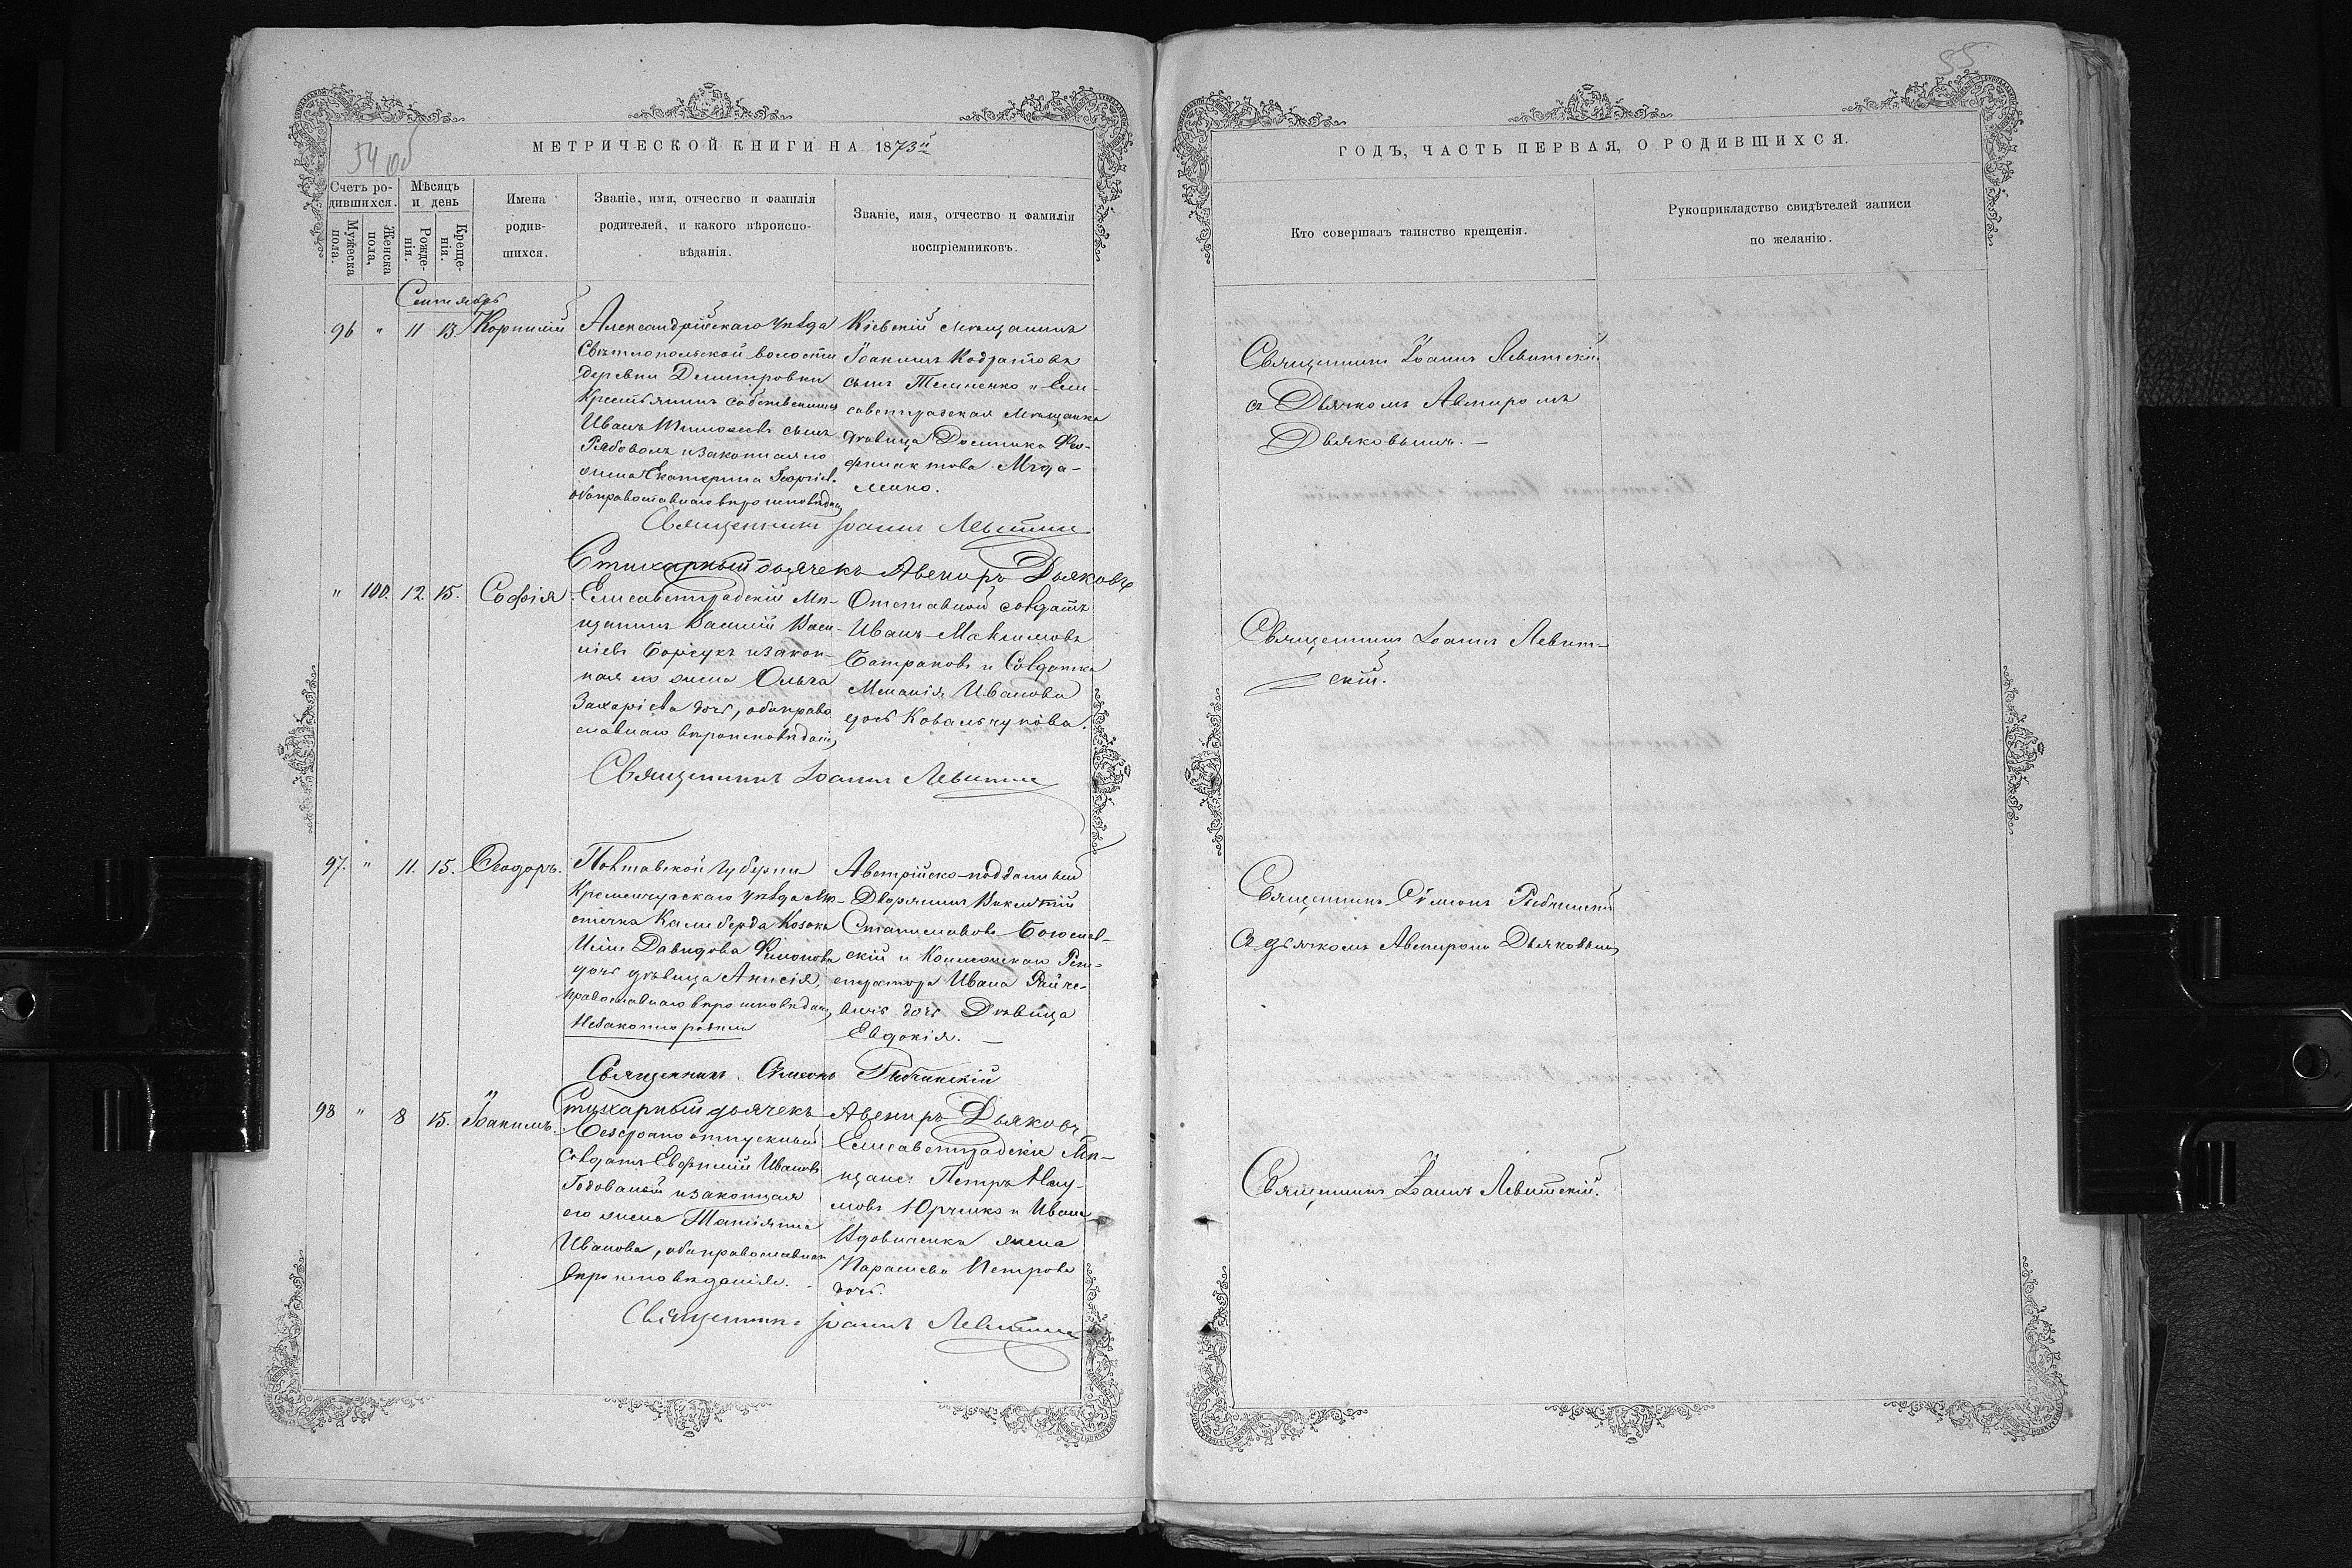 54 об
МЕТРИЧЕСКОЙ КНИГИ НА 1873й
Счетъ ро-
дившихся.
Мужеска
пола.
Женска
пола,
Мѣсяцъ
и день
Рожде-
нія.
Креще-
нія.
Имена
родив-
шихся.
Званіе, имя, отчество и фамилія
родителей, и какого вѣроиспо-
вѣданія.
Званіе, имя, отчество и фамилія
воспріемниковъ.
Сентябрь
96 " 11 13. Корнилій
Александрійскаго уѣзда
Свѣтлопольской волости
деревни Димитровки
Крестьянинъ собственникъ
Иванъ Тимоѳеевъ сынъ
Рябоволъ и законная его
жена Екатерина Георгіев.
оба православнаго вѣроисповѣдан.
Кіевскій мѣщанинъ
Іоаннъ Кодратовъ
сынъ и Ели-
саветградская мѣщанка
дѣвица Домника Ѳео-
филактова
Священникъ Іоаннъ Левитскій
Стихарный дьячекъ Авениръ Дьяковъ
" 100. 12. 15. Софія
Елисаветградскій Мѣ-
щанинъ Василій Васи-
ліевъ Борсукъ и закон-
ная его жена Ольга
Захаріева дочь, оба право
славнаго вѣроисповѣдан.
Отставной солдатъ
Иванъ Максимовъ
Батраковъ и Солдатка
Меланія Иванова
дочь Ковальчукова.
Священникъ Іоаннъ Левитскій
97. " 11. 15. Ѳеодоръ.
Полтавской губерніи
Кременчугскаго уѣзда Мѣ-
стечка Камеберда Козака
Давидова Филонова
дочь дѣвица Анисія,
православнаго вѣроисповѣдан,
Незаконнорожден
Австрійско-подданный
Дворянинъ Викентій
Станиславовъ
скій и Коллежскаго Реги-
стратора Ивана
дочь Дѣвица
Евдокія. —
Священникъ Сѵмеонъ Рыбчинскій
Стихарный дьячекъ Авениръ Дьяковъ
98 " 8 15. Іоакимъ.
Безсрочно отпускный
Солдатъ Евфимій Ивановъ
Годованый и законная
его жена Татіяна
Иванова, оба православнаго
вѣроисповѣданія.
Елисаветградскіе Мѣ-
щане: Петръ Нау-
мовъ Юрченко и Ивана
Вдовиченка жена
Параскева Петрова
дочь.
Священникъ Іоаннъ Левитскій
55
ГОДЪ, ЧАСТЬ ПЕРВАЯ, О РОДИВШИХСЯ.
Кто совершалъ таинство крещенія.
Рукоприкладство свидѣтелей записи
по желанію.
Священникъ Іоаннъ Левитскій
съ Дьячкомъ Авениромъ
Дьяковымъ. —
Священникъ Іоаннъ Левит-
скій.
Священникъ Сѵмеонъ Рыбчинскій
съ дьячкомъ Авениромъ Дьяковымъ
Священникъ Іоаннъ Левитскій.